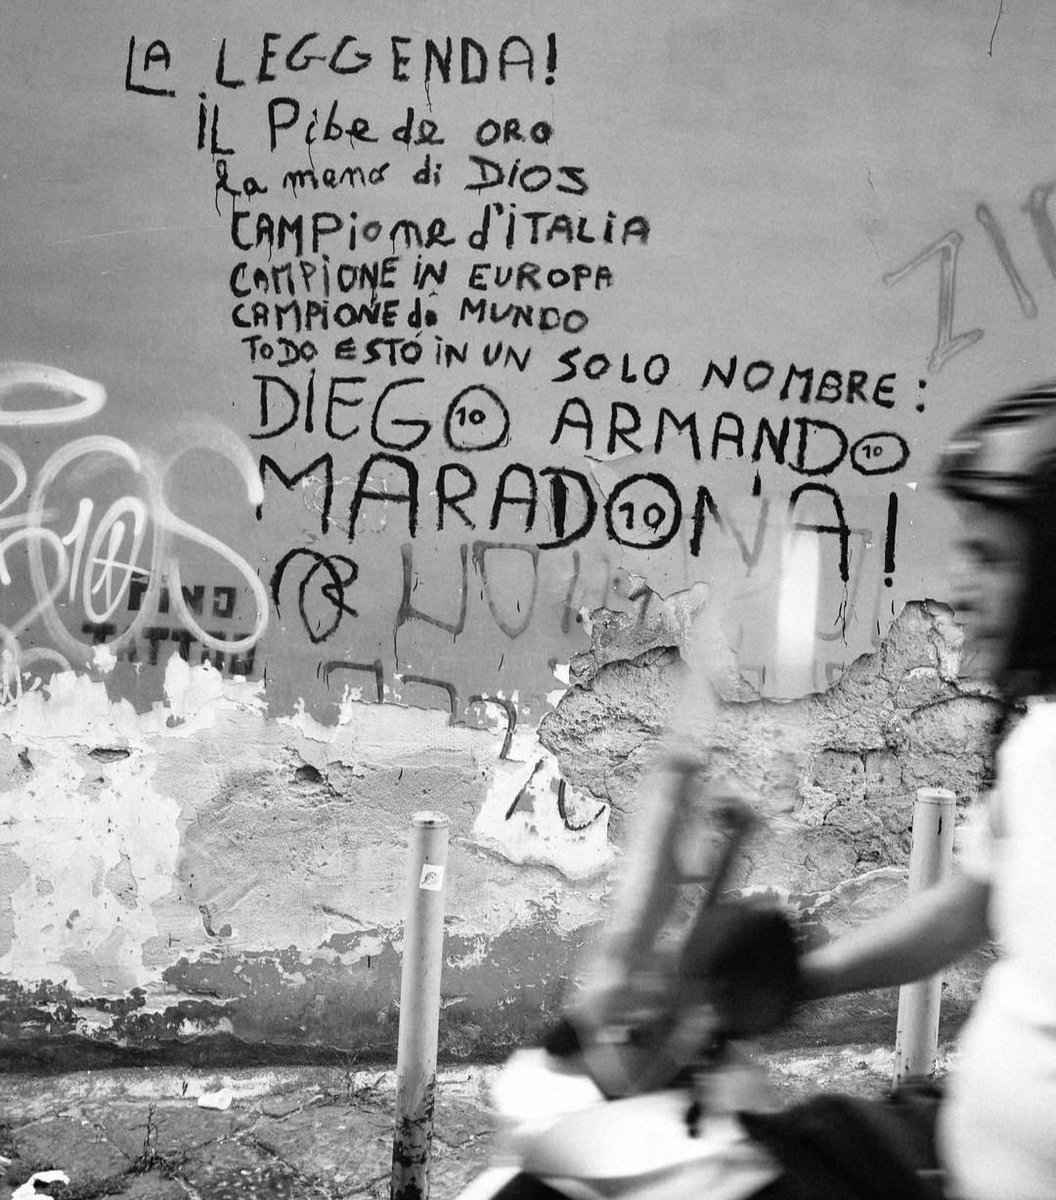 LA LEGGENDA!
iL Pibe de ORO
La mano di DiOS
CAMPione d'iTALiA
CAMPiONE iN EUROPA
CAMPiONE di MUNDO
ToDO ESTÓ iN UN SOLO NOMBRE:
DIEGO 10 ARMANDO 10
MARADO 10 NA!
10
PiNO